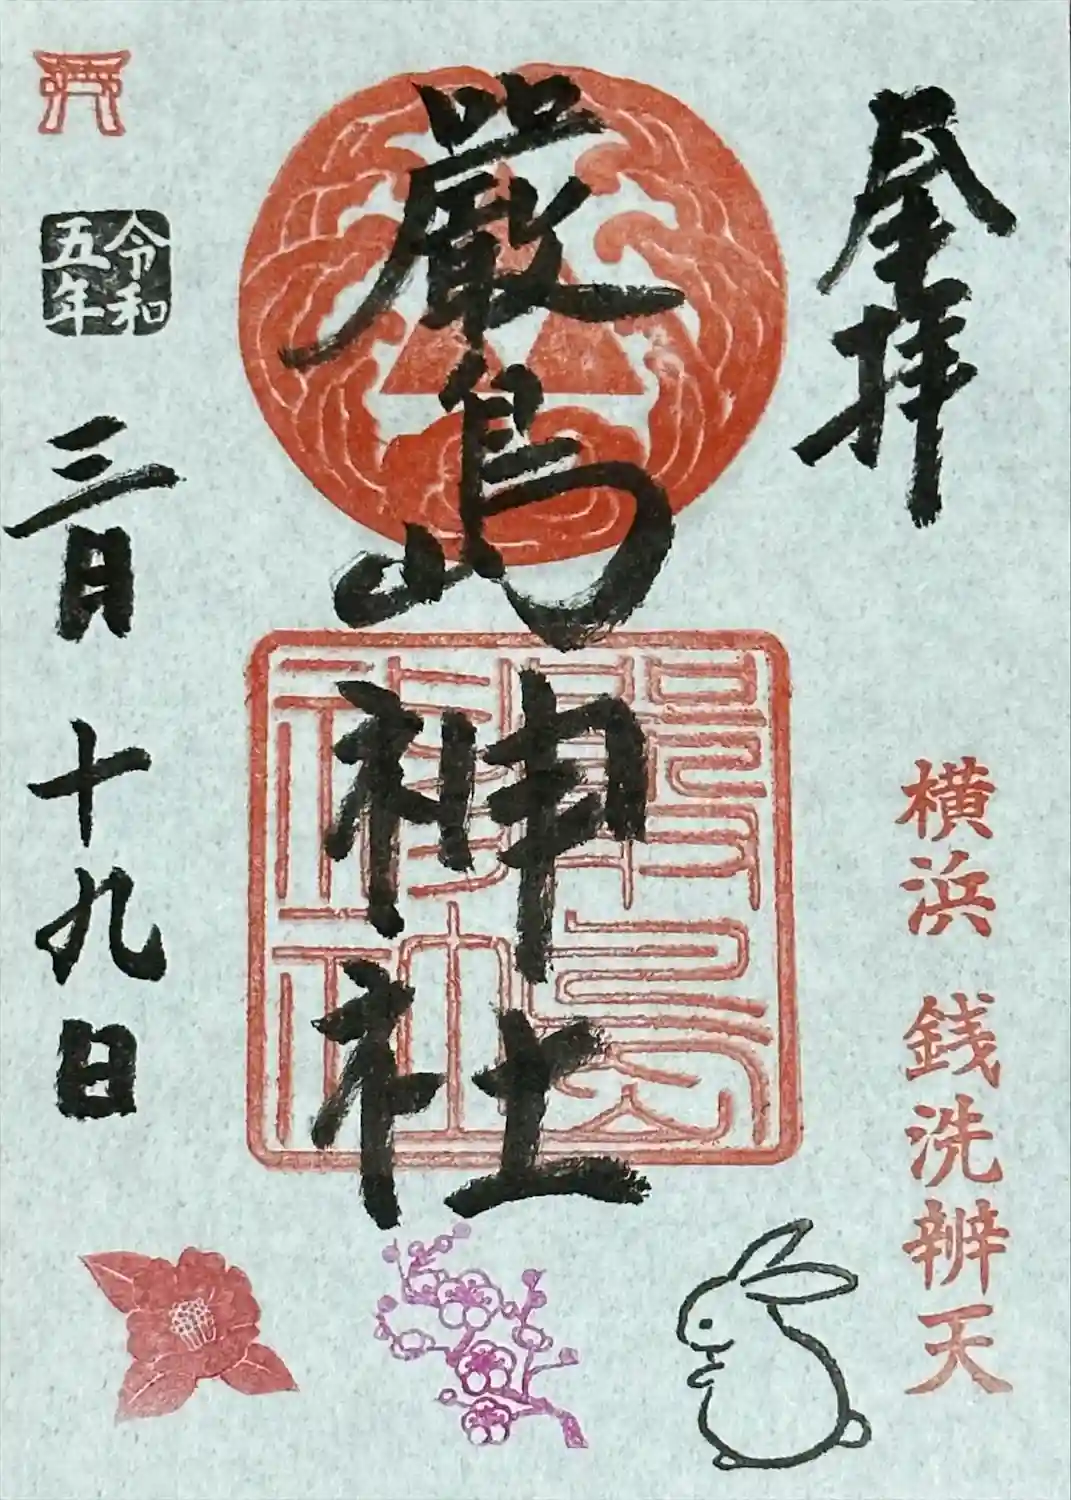 奉拝
横浜 銭洗辨天
嚴島神社
嚴島
神社
令和
五年
三月十九日